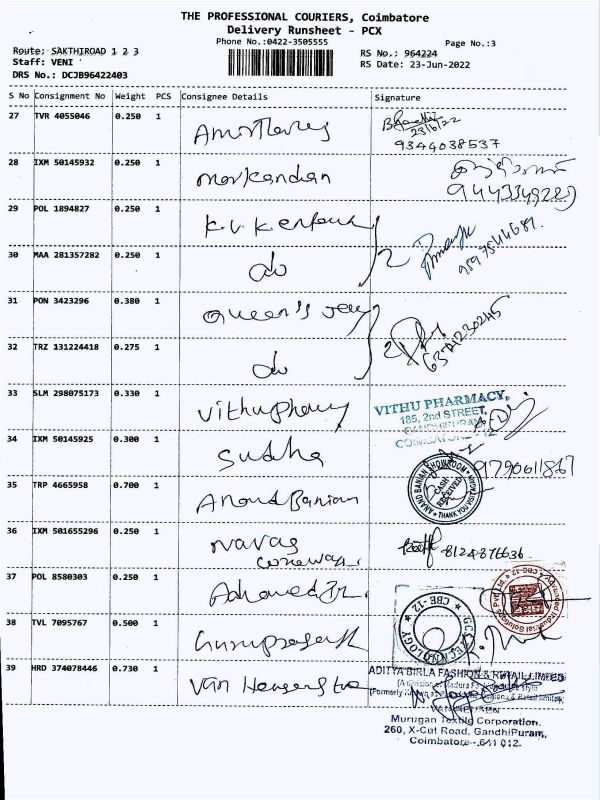 THE PROFESSIONAL COURIERS, Coimbatore
Delivery Runsheet - PCX
Phone No.:0422-3505555
Page No.:3
Route: SAKTHIROAD 1 2 3
RS No.: 964224
Staff: VENI
RS Date: 23-Jun-2022
DRS No.: DCJB96422403
S No Consignment No Weight PCS Consignee Details Signature
27 TVR 4055046 0.250 1
23/6/22
9344038537
28 IXM 50145932 0.250 1 Markandan
29 POL 1894827 0.250 1 K.V.K
30 MAA 281357282 0.250 1 do 2
31 PON 3423296 0.380 1 Queen's
32 TRZ 131224418 0.275 1 do 2
33 SLM 298075173 0.330 1
VITHU PHARMACY,
185, 2nd STREET,
GANDHIPURAM,
COIMBATORE - 12
34 IXM 50145925 0.300 1 Sudha 9790611867
35 TRP 4665958 0.700 1 Anand Banian
ANAND BANIAN SHOWROOM
CASH RECEIVED
THANK YOU VISIT AGAIN
36 IXM 501655296 0.250 1 Navas 8124876636
37 POL 8580303 0.250 1
Advanced Industrial Solutions Pvt. Ltd. CBE-12
38 TVL 7095767 0.500 1 Guruprasath
CBE-12
39 HRD 374078446 0.730 1 Van Heusen
ADITYA BIRLA FASHION & RETAIL LIMITED
(A division of Madura Fashion & Lifestyle
VAN HEUSEN
Murugan Textile Corporation,
260, X-Cut Road, GandhiPuram,
Coimbatore - 641 012.